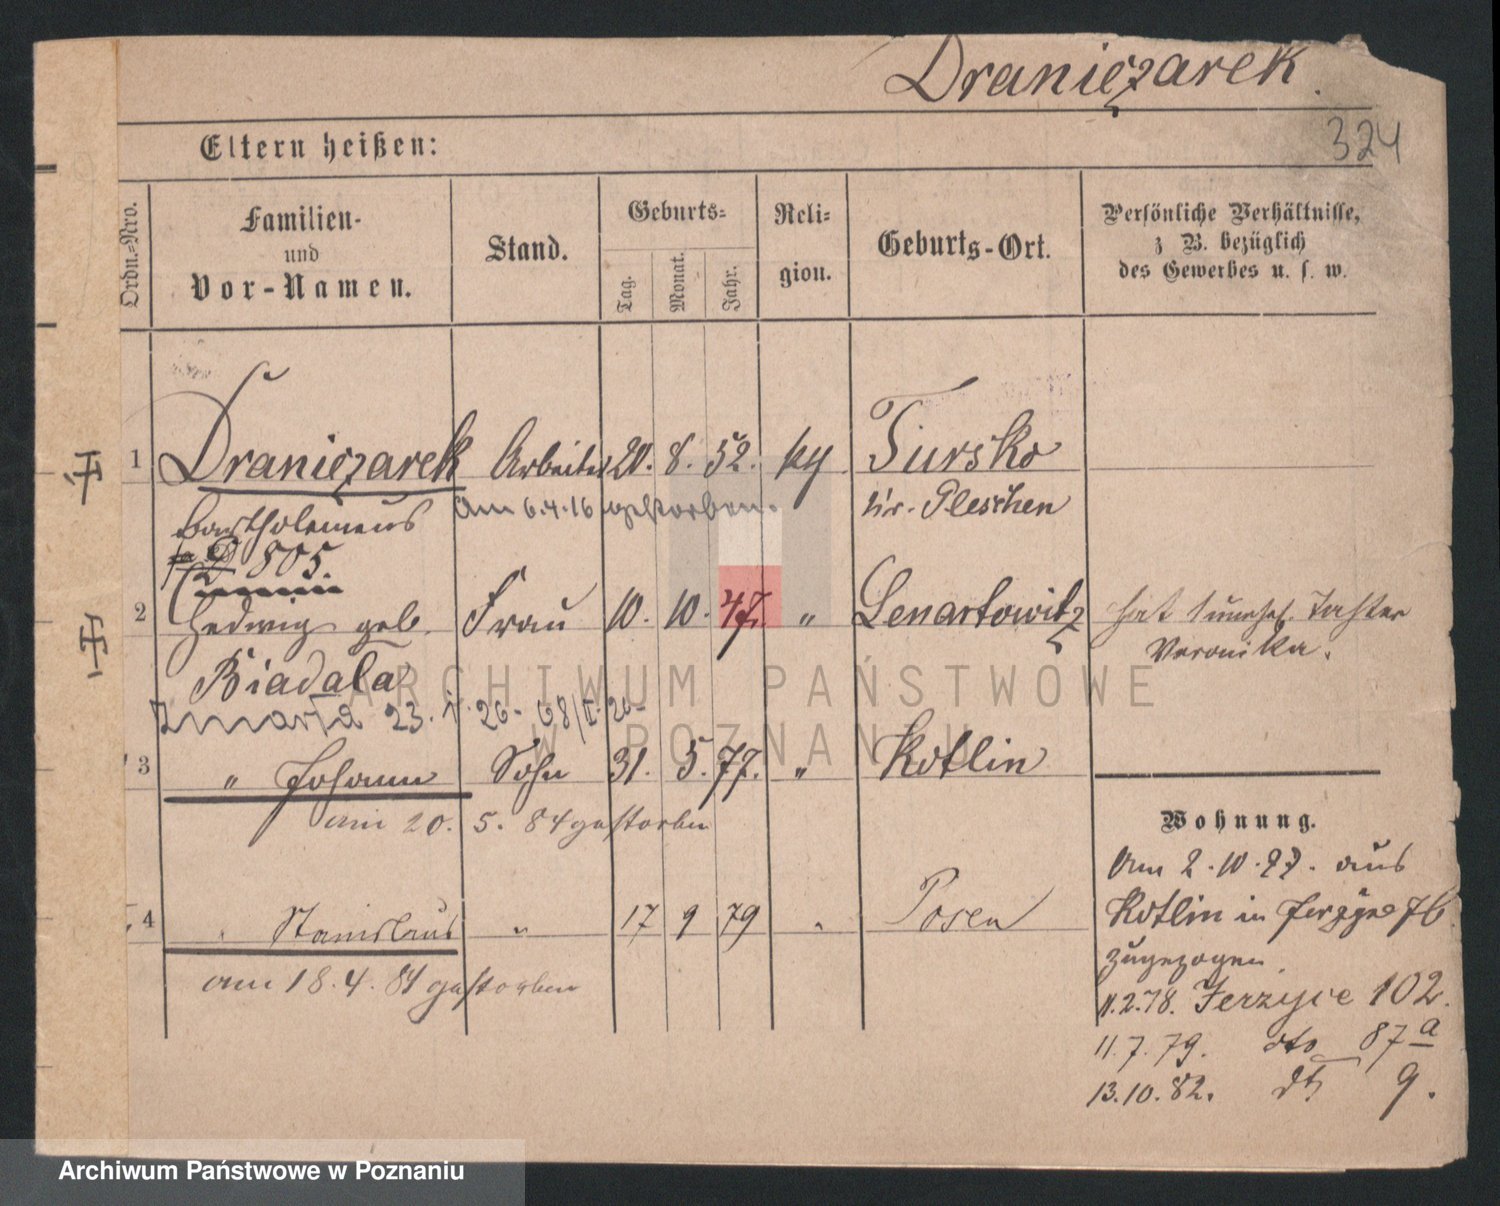 Draniczarek.
324
Eltern heißen:
Ordn.-Nro.
Familien-
und
Vor-Namen.
Stand.
Geburts-
Tag.
Monat.
Jahr.
Reli-
gion.
Geburts-Ort.
Persönliche Verhältnisse,
z B. bezüglich
des Gewerbes u. s. w.
1 Draniczarek Arbeiter 20. 8. 52. ky Tursko
Bartholemeus am 6.4.16 gestorben. Kr. Pleschen
D 805.
2 Hedwig geb. Frau 10. 10. 47. " Lenartowitz hat unehel. Tochter
Biadala Veronika.
zmarła 23. V. 26-68/V. 26-
3 " Johann Sohn 31. 5. 77. " Kotlin
am 20. 5. 84 gestorben
4 " Stanislaus " 17 9 79 " Posen
am 18.4.84 gestorben
Wohnung.
Am 2.10.77. aus
Kotlin in Jerzyce 76
zugezogen.
11.2.78. Jerzyce 102.
11.7.79. dto 87 a
13.10.82. dto 9.
ARCHIWUM PAŃSTWOWE
W POZNANIU
Archiwum Państwowe w Poznaniu